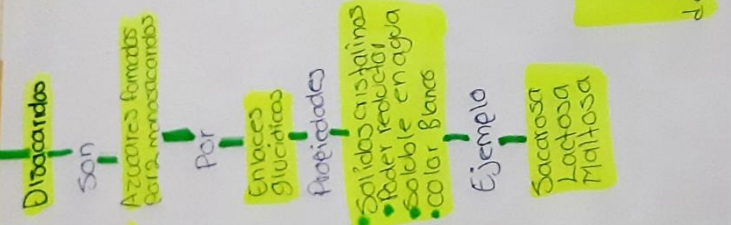 Disacaridos
son
Azucares formados
por 2 monosacaridos
Por
Enlaces
glucidicos
Propiedades
• Solidos cristalinos
• Poder reductor
• Soluble en agua
• color Blanco
Ejemplo
Sacarosa
Lactosa
Maltosa